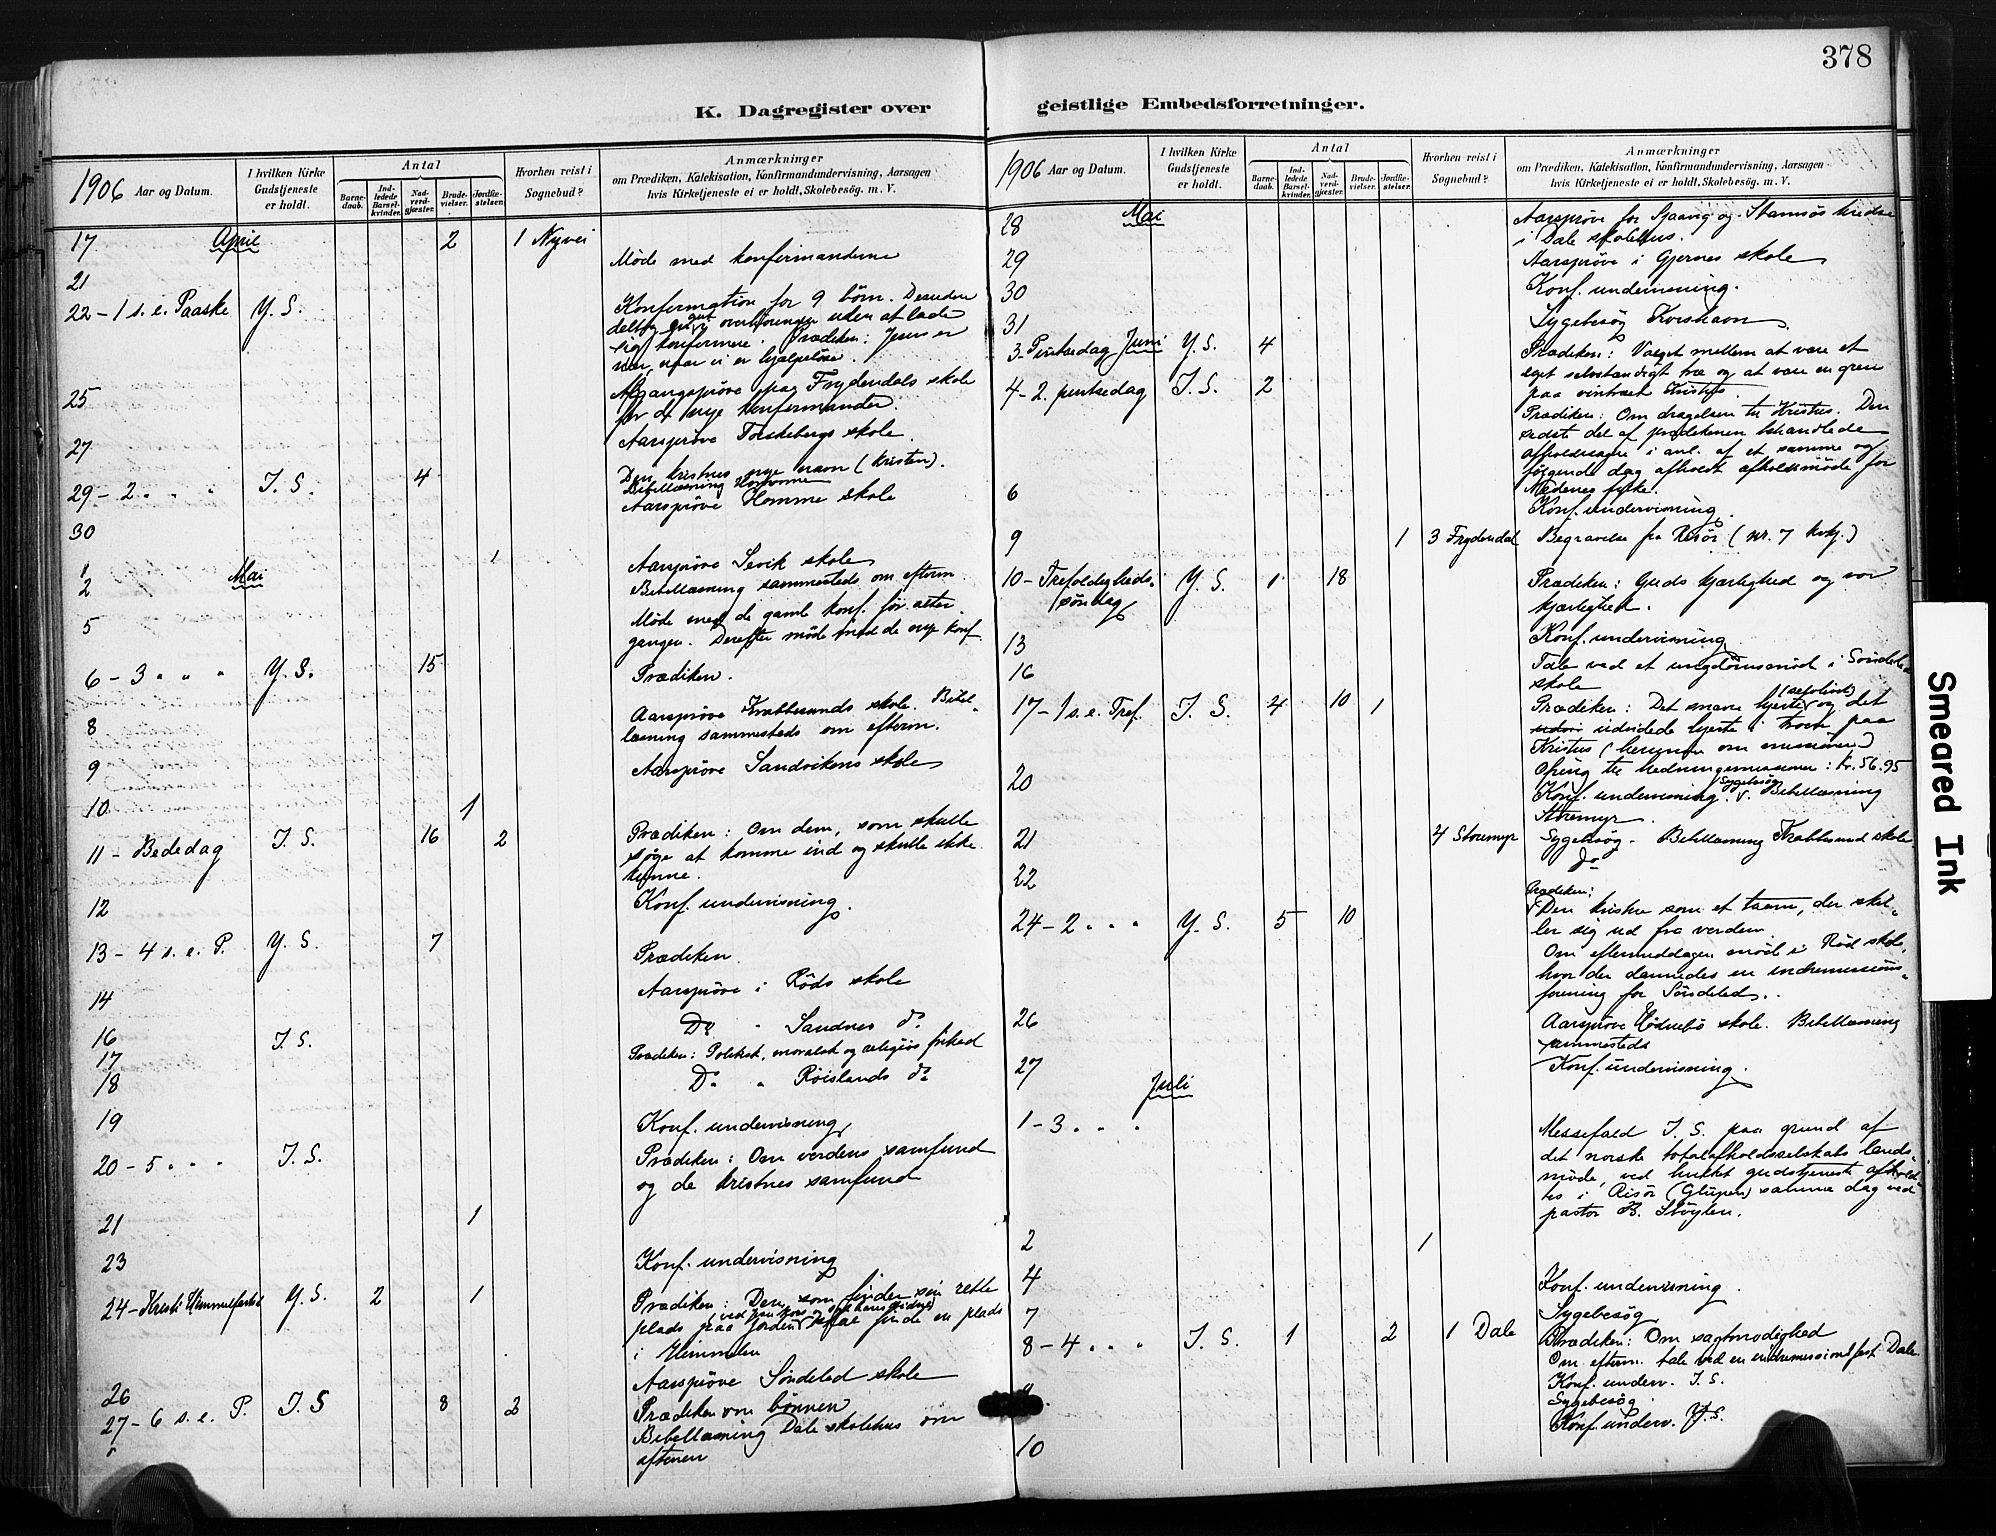 378
K. Dagregister over
geistlige Embedsforretninger.
1906 Aar og Datum.
I hvilken Kirke Gudstjeneste er holdt.
Antal
Barne-daab.
Ind-ledede Barsel-kvinder.
Nad-verd-gjæster.
Brude-vielser.
Jordfæ-stelser.
Hvorhen reist i Sognebud?
Anmærkninger
om Prædiken, Katekisation, Konfirmandundervisning, Aarsagen
hvis Kirketjeneste ei er holdt, Skolebesög. m. V.
17 April 2 1 Nyvei
21 Møde med konfirmanderne
22 - 1 s. e. Paaske Y. S. Konfirmation for 9 børn. Desuden
deltog en gut i overhøringen uden at lade
sig konfirmere. Prædiken: Jesus er
nær, naar vi er hjælpeløse.
25 Afgangsprøve paa Frydendals skole
for de nye konfirmander.
27 Aarsprøve Torskebergs skole.
29 - 2 " " " I. S. 4 Den kristnes nye navn (kristen).
Bibellæsning
30 Aarsprøve Homme skole
1 Mai 1 Aarsprøve Sevik skole
2 Bibellæsning sammesteds om efterm.
5 Møde med de gamle konf. før alter-
gangen. Derefter møde med de nye konf.
6 - 3 " " " Y. S. 15 Prædiken.
8 Aarsprøve Krabbesunds skole. Bibel-
læsning sammesteds om efterm.
9 Aarsprøve Sandvikens skole
10 1
11 - Bededag I. S. 16 2 Prædiken: Om dem, som skulle
søge at komme ind og skulle ikke
kunne.
12 Konf. undervisning.
13 - 4 s. e. P. Y. S. 7 Prædiken.
14 Aarsprøve i Røds skole
16 Do " Sandnes do
17 I. S. Prædiken: Politisk, moralsk og religiøs frihed
18 Do " Røislands do
19 Konf. undervisning
20 - 5 " " " I. S. Prædiken: Om verdens samfund
og de kristnes samfund
21 1
23 Konf. undervisning
24 - Kristi Himmelfartsd Y. S. 2 1 Prædiken: Den, som finder sin rette
plads paa jorden skal finde en plads
i Himmelen
26 Aarsprøve Søndeled skole
27 - 6 s. e. P. I. S 8 2 Prædiken om bønnen
Bibellæsning Dale skolehus om
aftenen
1906 Aar og Datum.
I hvilken Kirke Gudstjeneste er holdt.
Antal
Barne-daab.
Ind-ledede Barsel-kvinder.
Nad-verd-gjæster.
Brude-vielser.
Jordfæ-stelser.
Hvorhen reist i Sognebud?
Anmærkninger
om Prædiken, Katekisation, Konfirmandundervisning, Aarsagen
hvis Kirketjeneste ei er holdt, Skolebesög. m. V.
28 Mai Aarsprøve for og kredse
i Dale skolehus.
29 Aarsprøve i Gjernes skole
30 Konf. undervisning.
31 Sygebesøg Korshavn
3. Pintsedag Juni Y. S. 4 Prædiken: Valget mellem at være et
eget selvstændigt træ og at være en gren
paa vintræet Kristus.
4 - 2. pintsedag I. S. 2 Prædiken: Om dragelsen til Kristus. Den
sidst del af prædikenen behandlede
afholdssagen i anl. af et samme og
følgende dag afholdt afholdsmøde for
Nedenes fylke.
6 Konf. undervisning
9 1 3 Frydendal Begravelse fra Risør (nr. 7 kvkj.)
10 - Trefoldigheds-
søndag Y. S. 1 18 Prædiken: Guds kjærlighed og vor
kjærlighed.
13 Konf. undervisning
16 Tale ved et ungdomsmøde i
skole
17 - 1 s. e. Tref. I. S. 4 10 1 Prædiken: Det snævre hjerte og det
udvidede hjerte i troen paa
Kristus (herunder om missionen)
Ofring til hedningemissionen: kr. 56.95
20 Konf. undervisning. Sygebesøg Bibellæsning
Storemyr.
21 4 Storemyr Sygebesøg. Bibellæsning Krabbesund skole.
22 Do
24 - 2 " " " Y. S. 5 10 Prædiken:
Den kristne som et taarn, der skil-
ler sig ud fra verden.
Om eftermiddagen møde i Rød skole,
hvor der dannedes en indremissions-
forening for Søndeled.
26 Aarsprøve Hødnebø skole. Bibellæsning
sammesteds
27 Konf. undervisning.
Juli
1 - 3 " " " Messefald I. S. paa grund af
det norske totalafholdsselskabs lands-
møde, ved hvilket gudstjeneste afhold-
tes i Risør (Glupen) samme dag ved
pastor B. Støylen.
2 1
4 Konf. undervisning
7 Sygebesøg
8 - 4 " " " I. S. 1 2 1 Dale Prædiken: Om sagtmodighed
Om efterm. tale ved en indremissionsfest Dale
Konf. underv. I. S.
Sygebesøg
10 Konf. underv. Y. S.
Smeared Ink